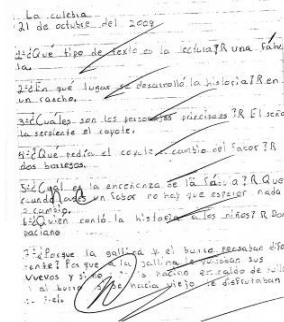 La culebra
21 de octubre del 2009
1-¿Qué tipo de texto es la lectura? R una fábu
la.
2-¿En qué lugar se desarrolló la historia? R en
un rancho.
3-¿Cuáles son los personajes principales? R El señor
la serpiente el coyote.
4-¿Qué pedía el coyote a cambio del favor? R
dos borregos.
5-¿Cuál es la enceñenza de la fábula? R Que
cuando haces un fabor no hay que esperar nada
a cambio.
6-¿Quién contó la historia a los niños? R Don
paciano
7-¿Porque la gallina y el burro pensaban dife
rente? Porque a la gallina le quitaban sus
vuevos y si no
al burro se hacia viejo le disfrutaban